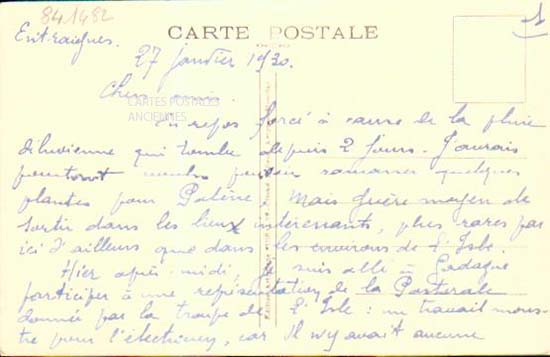 841482
Entraigues.
CARTE POSTALE
1
27 janvier 1930.
Cher ami
CARTES POSTALES
ANCIENNES
En repos forcé à cause de la pluie
diluvienne qui tombe depuis 2 jours. J'aurais
pourtant voulu ramasser quelques
plantes pour Mais guère moyen de
sortir dans les lieux intéressants, plus rares par
ici d'ailleurs que dans les environs de l'Isle.
Hier après-midi, je suis allé à Gadagne
participer à une représentation de la Pastorale
donnée par la troupe de l'Isle : un travail mons-
tre pour l'électricien, car il n'y avait aucune